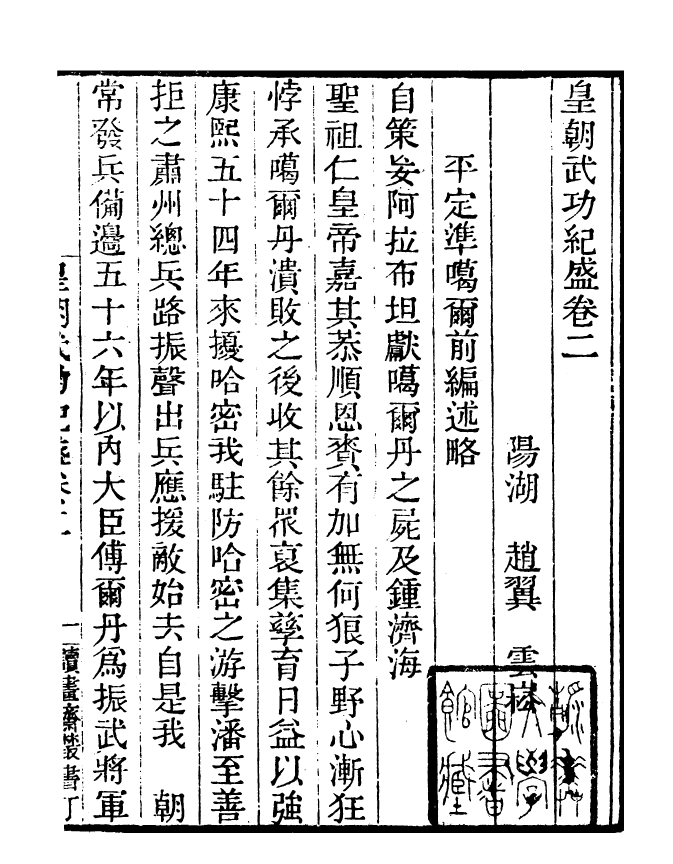 皇朝武功紀盛卷二
陽湖　趙翼　雲崧
平定準噶爾前編述略
自策妄阿拉布坦獻噶爾丹之屍及鍾濟海
聖祖仁皇帝嘉其恭順恩賚有加無何狼子野心漸狂
悖承噶爾丹潰敗之後收其餘眾裒集孳育日益以強
康熙五十四年來擾哈密我駐防哈密之游擊潘至善
拒之肅州總兵路振聲出兵應援敵始去自是我　朝
常發兵備邊五十六年以內大臣傅爾丹為振武將軍
皇朝武功紀盛卷二　一　讀畫齋叢書丁